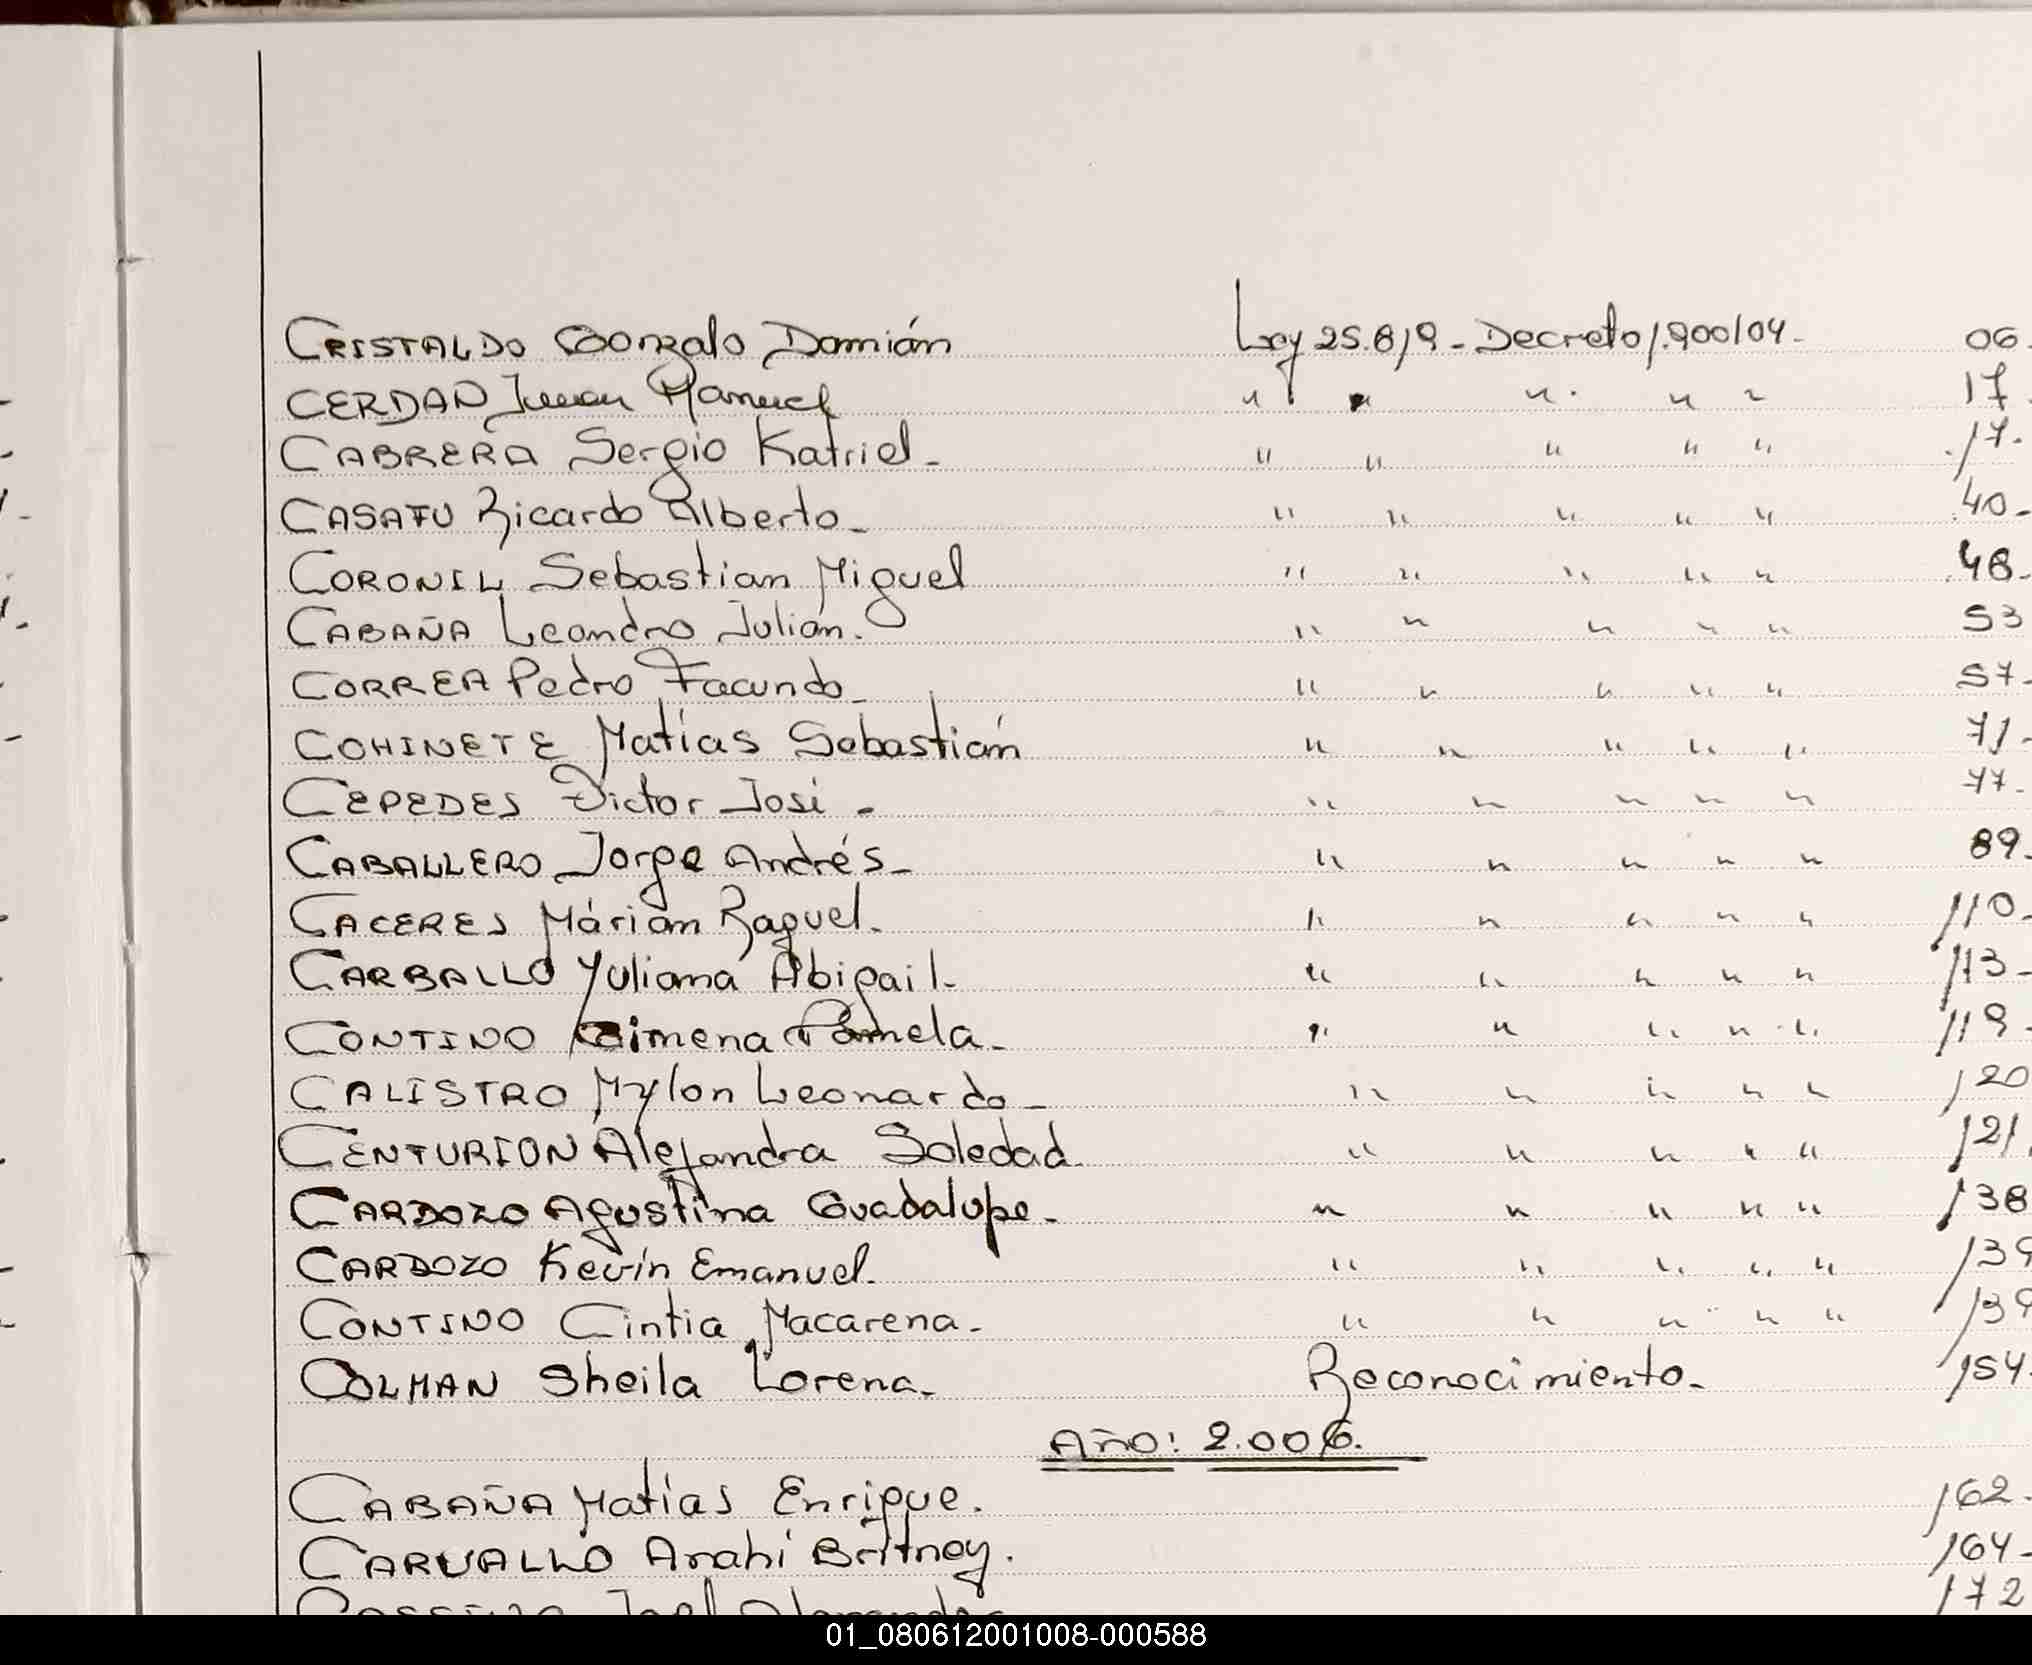 CRISTALDO Gonzalo Damián Ley 25.819 - Decreto 1.900/04 - 06.
CERDAN Juan Manuel " " " " " 17.
CABRERA Sergio Katriel - " " " " " 17.
Ricardo Alberto - " " " " " 40 -
CORONIL Sebastian Miguel " " " " " 48 -
CABAÑA Leandro Julián. " " " " " 53
CORREA Pedro Facundo - " " " " " 57 -
COHINETE Matías Sebastián " " " " " 71 -
CEPEDES Victor José - " " " " " 77 -
CABALLERO Jorge Andrés - " " " " " 89 -
CACERES Márian Raquel. " " " " " 110 -
CARBALLO Yuliana Abigail - " " " " " 113 -
CONTINO Ximena Pamela - " " " " " 119 -
CALISTRO Mylon Leonardo - " " " " " 120
CENTURION Alejandra Soledad. " " " " " 121.
CARDOZO Agustina Guadalupe - " " " " " 138
CARDOZO Kevin Emanuel. " " " " " 139
CONTINO Cintia Macarena - " " " " " 139
COLMAN Sheila Lorena - Reconocimiento - 154 -
Año: 2.006.
CABAÑA Matías Enrique. 162 -
CARVALLO Anahi Britney. 164 -
172
01_080612001008-000588